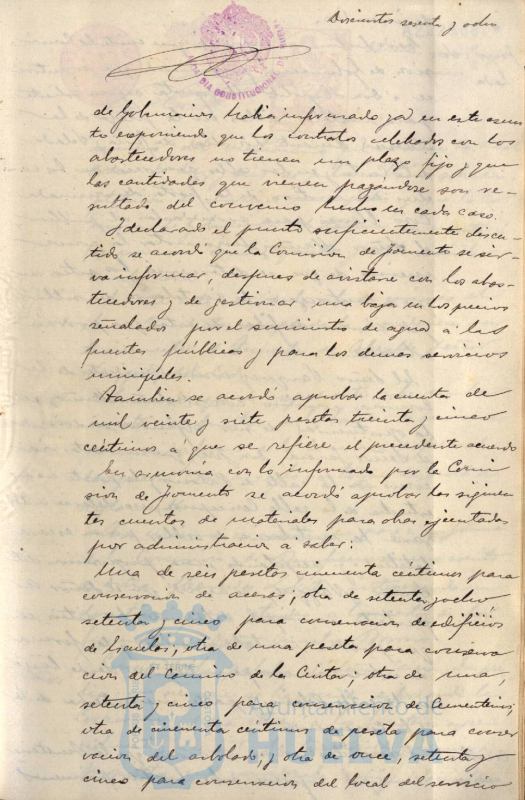 Doscientos sesenta y ocho
ALCALDIA CONSTITUCIONAL DE HUELVA
de Gobernacion habia informado ya en este asun
to exponiendo que los contratos celebrados con los
abastecedores no tienen un plazo fijo y que
las cantidades que vienen pagandose son re-
sultado del convenio hecho en cada caso.
Y declarado el punto suficientemente discu-
tido se acordó que la Comision de Fomento se sir-
va informar, despues de avistarse con los abas-
tecedores y de gestionar una baja en los precios
señalados por el suministro de agua á las
fuentes públicas y para los demas servicios
municipales.
Tambien se acordó aprobar la cuenta de
mil veinte y siete pesetas treinta y cinco
céntimos á que se refiere el precedente acuerdo
En armonía con lo informado por la Comi
sion de Fomento se acordó aprobar las siguien
tes cuentas de materiales para obras ejecutadas
por administracion á saber:
Una de séis pesetas cincuenta céntimos para
conservacion de aceras; otra de setenta y ocho
setenta y cinco para conservacion de edificios
de Escuelas; otra de una peseta para conserva
cion del Camino de la Cinta; otra de una,
setenta y cinco para conservacion de Cementerios;
otra de cincuenta céntimos de peseta para conser
vacion del arbolado; y otra de once, setenta y
cinco para conservacion del local del servicio
Ayuntamiento de
HUELVA